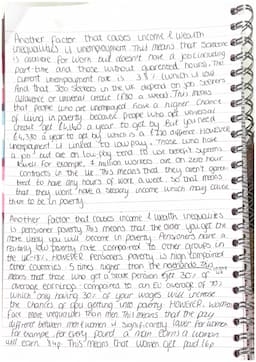 Another factor that causes income & wealth
inequalities is unemployment. This means that someone
is available for work but doesn't have a job (including
part-time and those without guaranteed hours). The
current unemployment rate is 3.8% (which is low
And that 300 seekers in the UK depend on job seekers
allowance or universal credit (£80 a week). This means
that people who are unemployed have a higher chance
of living in poverty because people who get universal
credit get £4,160 a year to get by but you need
a year to get by which is a difference. However
unemployment is linked to low pay. Those who have
a job but are on low pay need to use benefit system
as well. For example, 1 million workers are on zero hour
contracts in the UK. This means that they aren't
to have any hours of work a week. So that means
that they won't have a steady income which may cause
them to be in poverty.
Another factor that causes income & wealth inequalities
is pensioner poverty. This means that the older you get the
more likely you will become in poverty. Pensioners have a
relatively low poverty rate compared to other groups in
the UK. HOWEVER pensioners poverty is high compared
other countries 5 times higher than the
means that those who get a state pension get 30% of
average earnings compared to an EU average of 70%
which only having 30% of your wages will increase
the chances of you getting into poverty. HOWEVER, women
face more inequalities than men. This means that the pay
different between men & women is significantly lower for women
for example, for every pound a man earns a woman
will earn 84p. This means that women get paid 16p